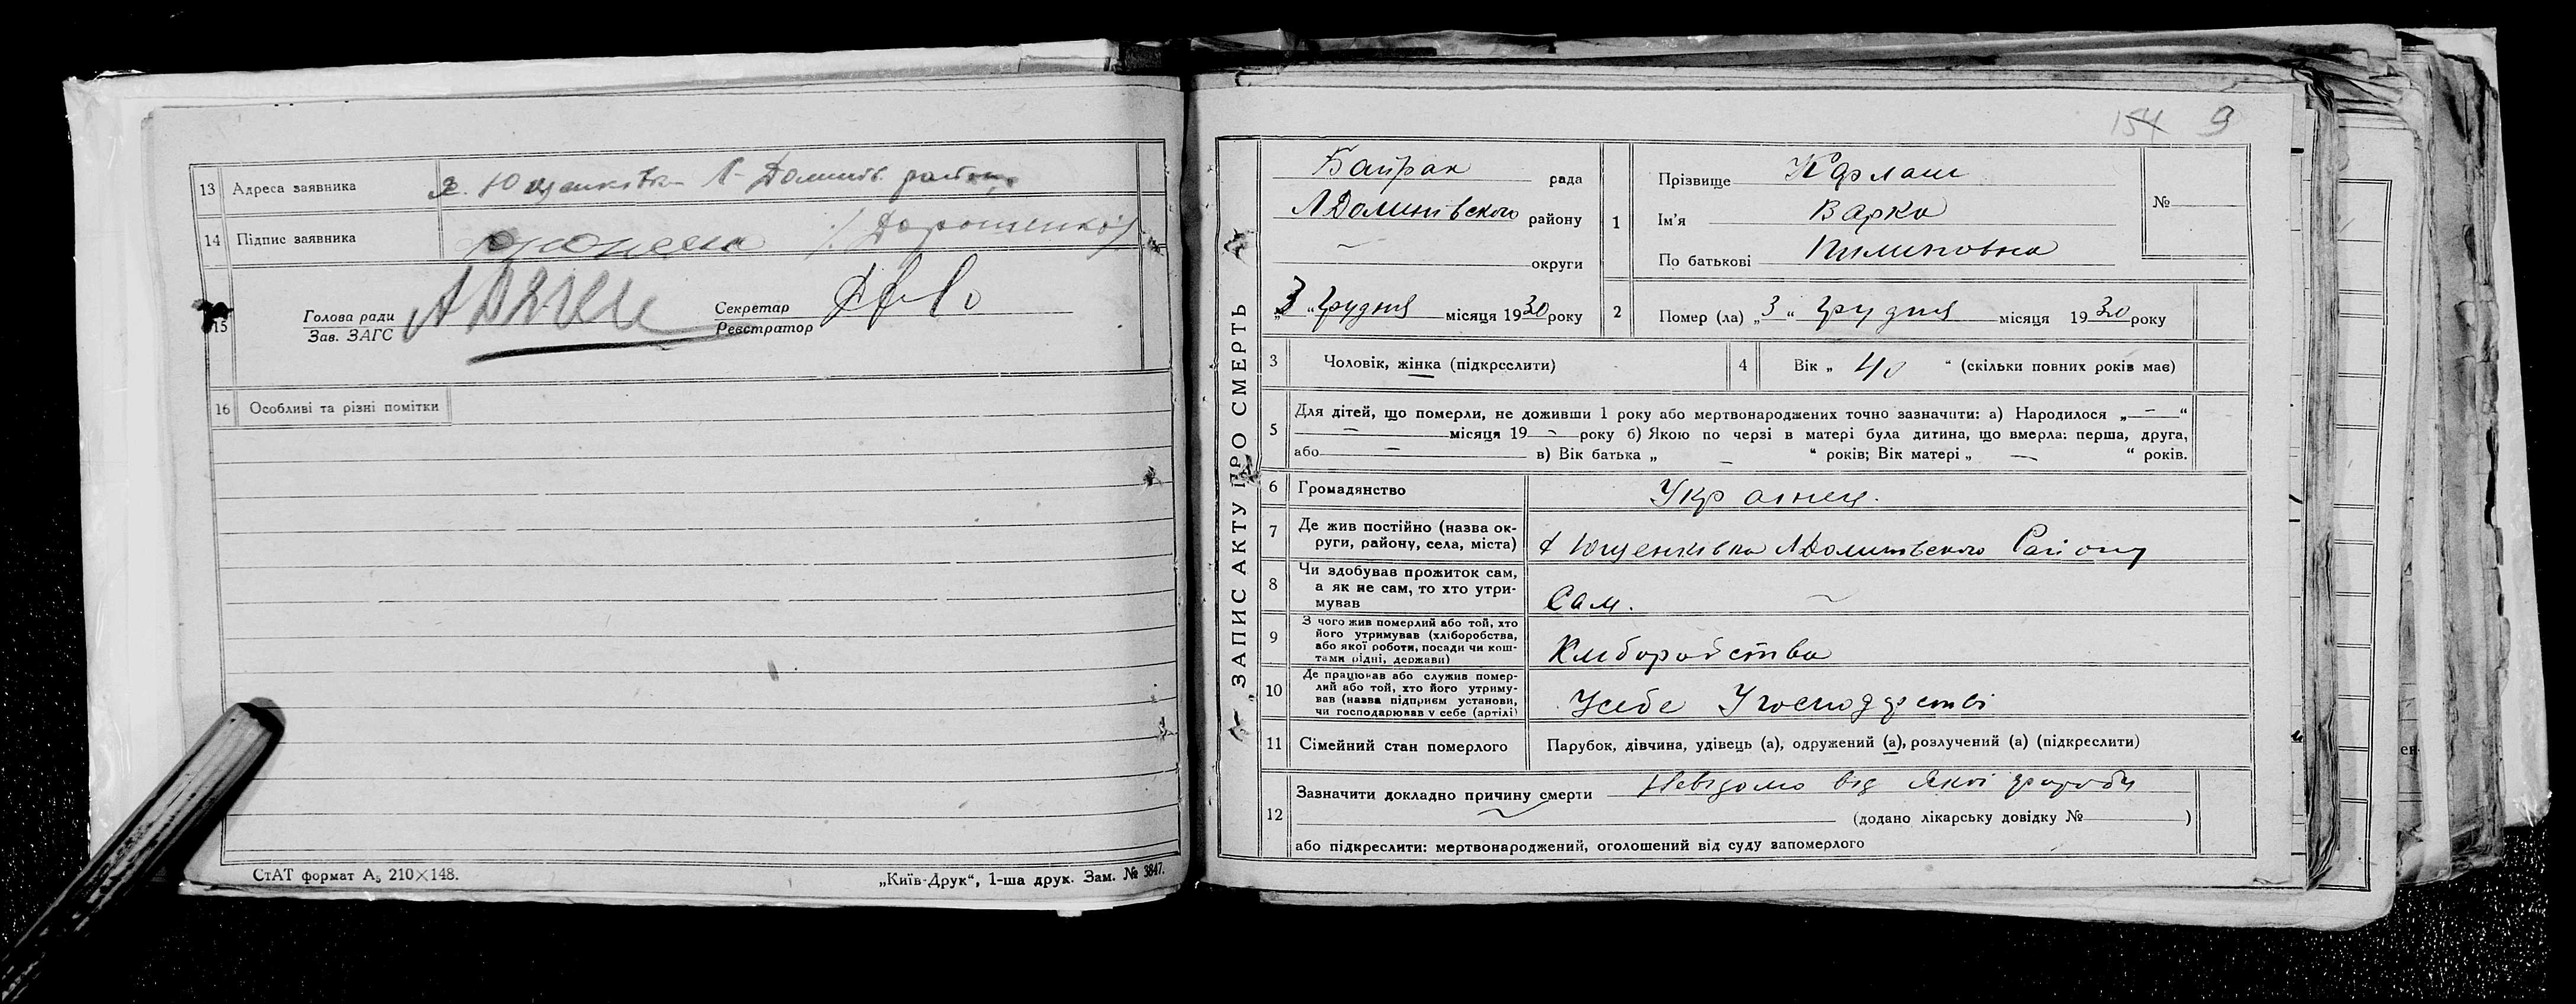 13 Адреса заявника х. Ющенківка Л-Долинів. району
14 Підпис заявника /Дорошенко/
15 Голова ради
Зав. ЗАГС
Секретар
Реєстратор
16 Особливі та різні помітки
СтАТ формат А₅ 210×148.
„Київ-Друк“, 1-ша друк. Зам. № 3847.
154 9
ЗАПИС АКТУ ПРО СМЕРТЬ
Байрак рада
ЛДолинівського району
— округи
„3“ Грудня місяця 1930 року
1 Прізвище Карлаш
Ім’я Варка
По батькові Пилиповна
№
2 Помер (ла) „3“ грудня місяця 1930 року
3 Чоловік, жінка (підкреслити)
4 Вік „40“ (скільки повних років має)
5 Для дітей, що померли, не доживши 1 року або мертвонароджених точно зазначити: а) Народилося „—“
— місяця 19 — року б) Якою по черзі в матері була дитина, що вмерла: перша, друга,
або — в) Вік батька „ — “ років; Вік матері „ — “ років.
6 Громадянство Українец.
7 Де жив постійно (назва ок-
руги, району, села, міста) х Ющенківка ЛДолинівського Району
8 Чи здобував прожиток сам,
а як не сам, то хто утри-
мував Сам. —
9 З чого жив померлий або той, хто
його утримував (хліборобства,
або якої роботи, посади чи кош-
тами рідні, держави) Хліборобства
10 Де працював або служив помер-
лий або той, хто його утриму-
вав (назва підприєм установи,
чи господарював у себе (артілі) Усебе Угосподарстві
11 Сімейний стан померлого Парубок, дівчина, удівець (а), одружений (а), розлучений (а) (підкреслити)
12 Зазначити докладно причину смерти Невідомо від якої хвороби
(додано лікарську довідку № )
або підкреслити: мертвонароджений, оголошений від суду запомерлого